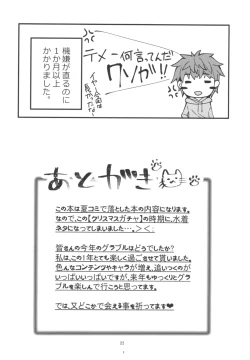 機嫌が直るのに
1か月以上
かかりました。
テメー何言ってんだ
クソガ!!
イヤー今回は
長かったな
あとがき
この本は夏コミで落とした本の内容になります。
なので、この【クリスマスガチャ】の時期に、水着
ネタになってしました...>_<;
皆さんの今年のグラブルはどうでしたか?
私は、この1年とても楽しく過ごさせて貰いました。
色んなコンテンツやキャラが増え、追いつくのが
いっぱいいっぱいですが、来年もゆっくりとグラ
ブルを楽しんで行こうと思ってます。
では、又どこかで会える事を祈ってます♥